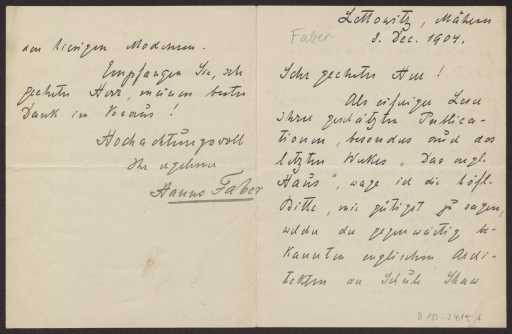 Lettowitz, Mähren
8. Dec. 1904.
Faber
Sehr geehrter Herr!
Als eifriger Leser
Ihrer geschätzten Publica-
tionen, besonders auch des
letzten Werkes „Das engl.
Haus", wage ich die höfl.
Bitte, mir gütigst zu sagen,
welche der gegenwärtig be-
kannten englischen Archi-
tekten der Schule Shaw
den hiesigen Modernen.
Empfangen Sie, sehr
geehrter Herr, meinen besten
Dank im Voraus!
Hochachtungsvoll
Ihr ergebener
Hanns Faber